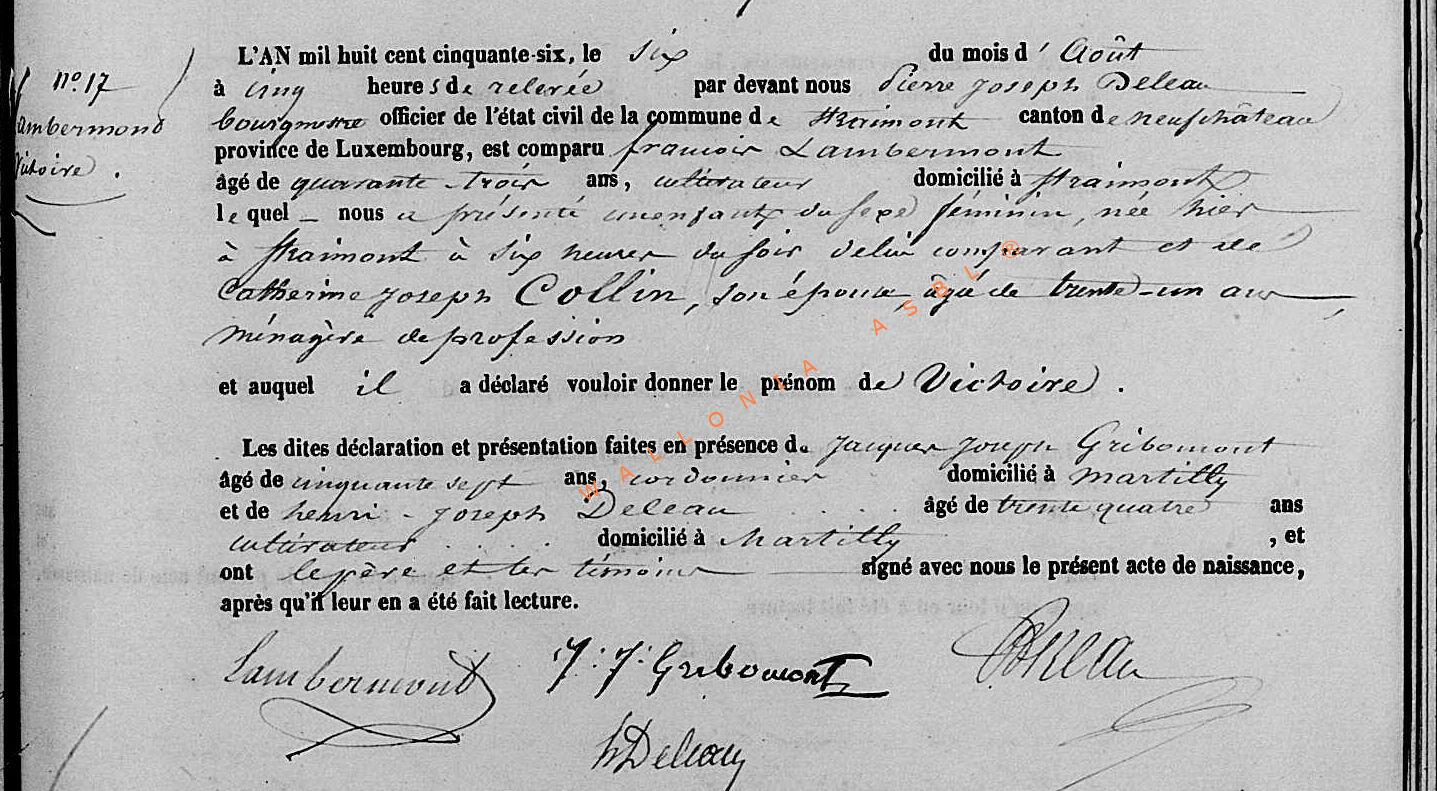 L'AN mil huit cent cinquante-six, le six du mois d' Août
n°. 17
à cinq heures de relevée par devant nous Pierre Joseph Deleau
Lambermond
bourgmestre officier de l'état civil de la commune de Straimont canton de neufchâteau
province de Luxembourg, est comparu francois Lambermont
Victoire.
âgé de quarante-trois ans, cultivateur domicilié à Straimont
lequel nous a présenté un enfant du sexe féminin, née hier
à Straimont à six heures du soir de lui comparant et de
Catherine Joseph Collin, son épouse, âgée de trente-un ans,
ménagère de profession
et auquel il a déclaré vouloir donner le prénom de Victoire.
Les dites déclaration et présentation faites en présence de Jacques Joseph Gribomont
âgé de cinquante sept ans, cordonnier domicilié à Martilly
et de henri-Joseph Deleau âgé de trente quatre ans
cultivateur domicilié à Martilly, et
ont le père et les témoins signé avec nous le présent acte de naissance,
après qu'il leur en a été fait lecture.
Lambermond J: J: Gribomont Deleau
h Deleau
WALLONIA ASBL ®